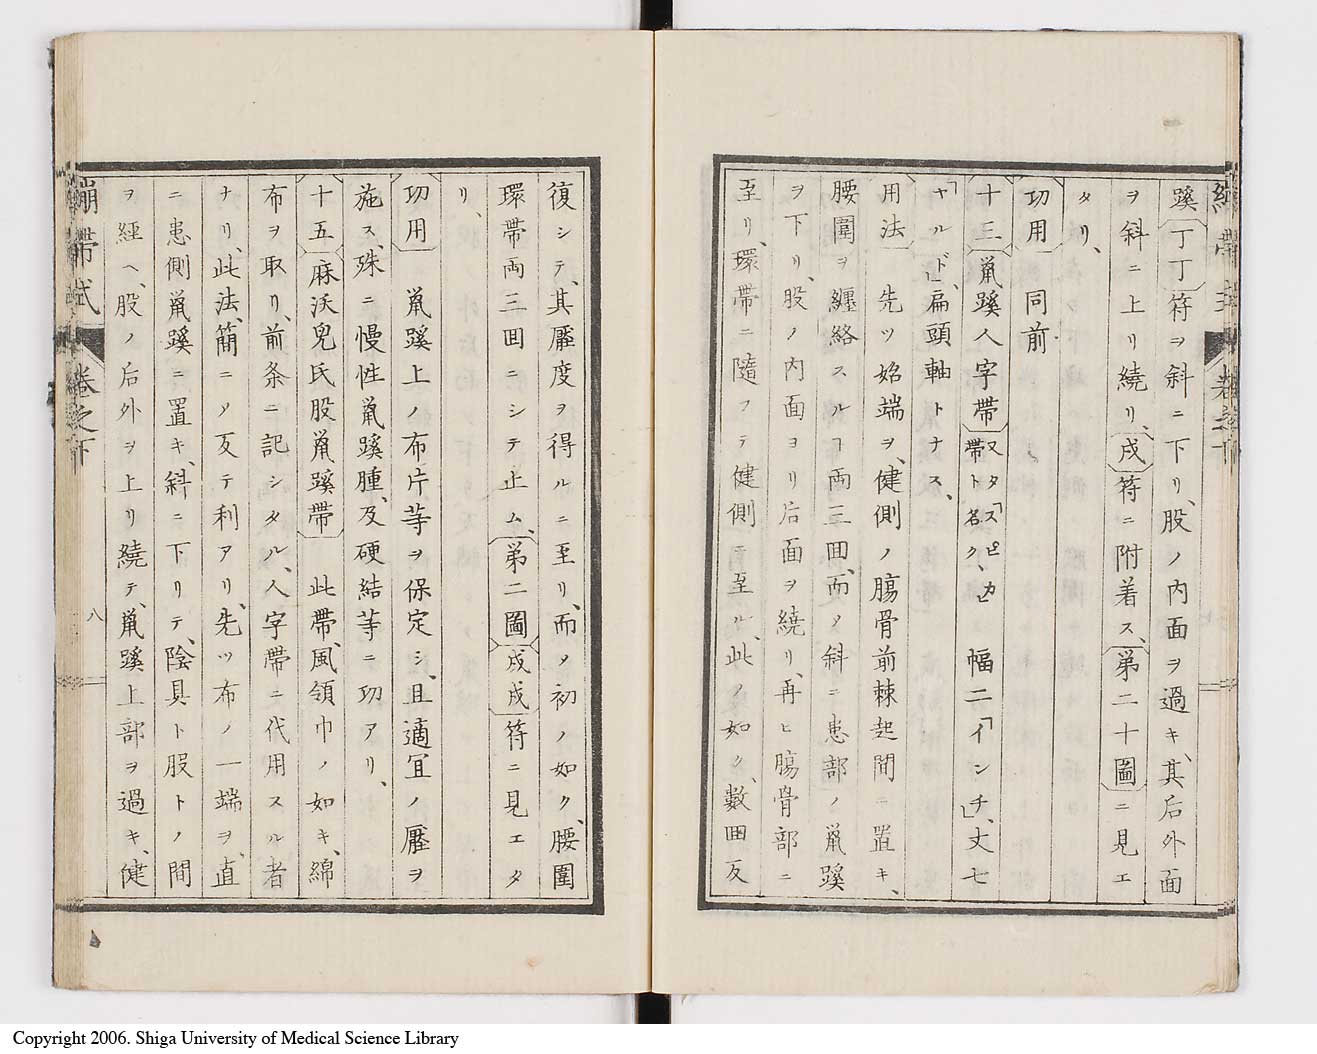 蹊丁丁符ヲ斜ニ下リ、股ノ内面ヲ過キ、其后外面
ヲ斜ニ上リ繞リ、戌符ニ附着ス、第二十圖ニ見エ
タリ、
功用 同前
十三鼠蹊人字帶又タ「スピ、カヒ帶ト名ク、 幅二「インチ」、丈七
「ヤルド」、扁頭軸トナス、
用法 先ツ始端ヲ、健側ノ膓骨前棘起間ニ置キ、
腰圍ヲ纏絡スルヿ両三回、而メ斜ニ患部ノ鼠蹊
ヲ下リ、股ノ内面ヨリ后面ヲ繞リ、再ヒ膓骨部ニ
至リ、環帶ニ隨フテ健側ニ至ル、此ノ如ク、數回反
復シテ、其壓度ヲ得ルニ至リ、而ノ初ノ如ク、腰圍
環帶両三回ニシテ止ム、第二圖戌戌符ニ見エタ
リ、
功用 鼠蹊上ノ布片等ヲ保定シ、且適宜ノ壓ヲ
施ス、殊ニ慢性鼠蹊腫、及硬結等ニ功アリ、
十五麻沃兒氏股鼠蹊帶 此帶、風領巾ノ如キ、綿
布ヲ取リ、前条ニ記シタル、人字帶ニ代用スル者
ナリ、此法、簡ニノ反テ利アリ、先ツ布ノ一端ヲ、直
ニ患側鼠蹊ニ置キ、斜ニ下リテ、陰具ト股トノ間
ヲ經ヘ、股ノ后外ヲ上リ繞テ、鼠蹊上部ヲ過キ、健
繃帶式 卷之下 八